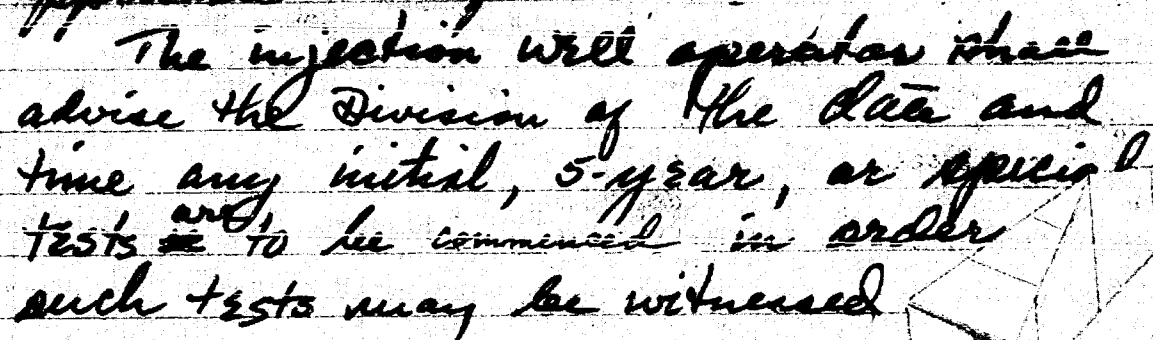 The injection well operator shall
advise the Division of the date and
time any initial, 5-year, or special
tests are to be commenced in order
such tests may be witnessed